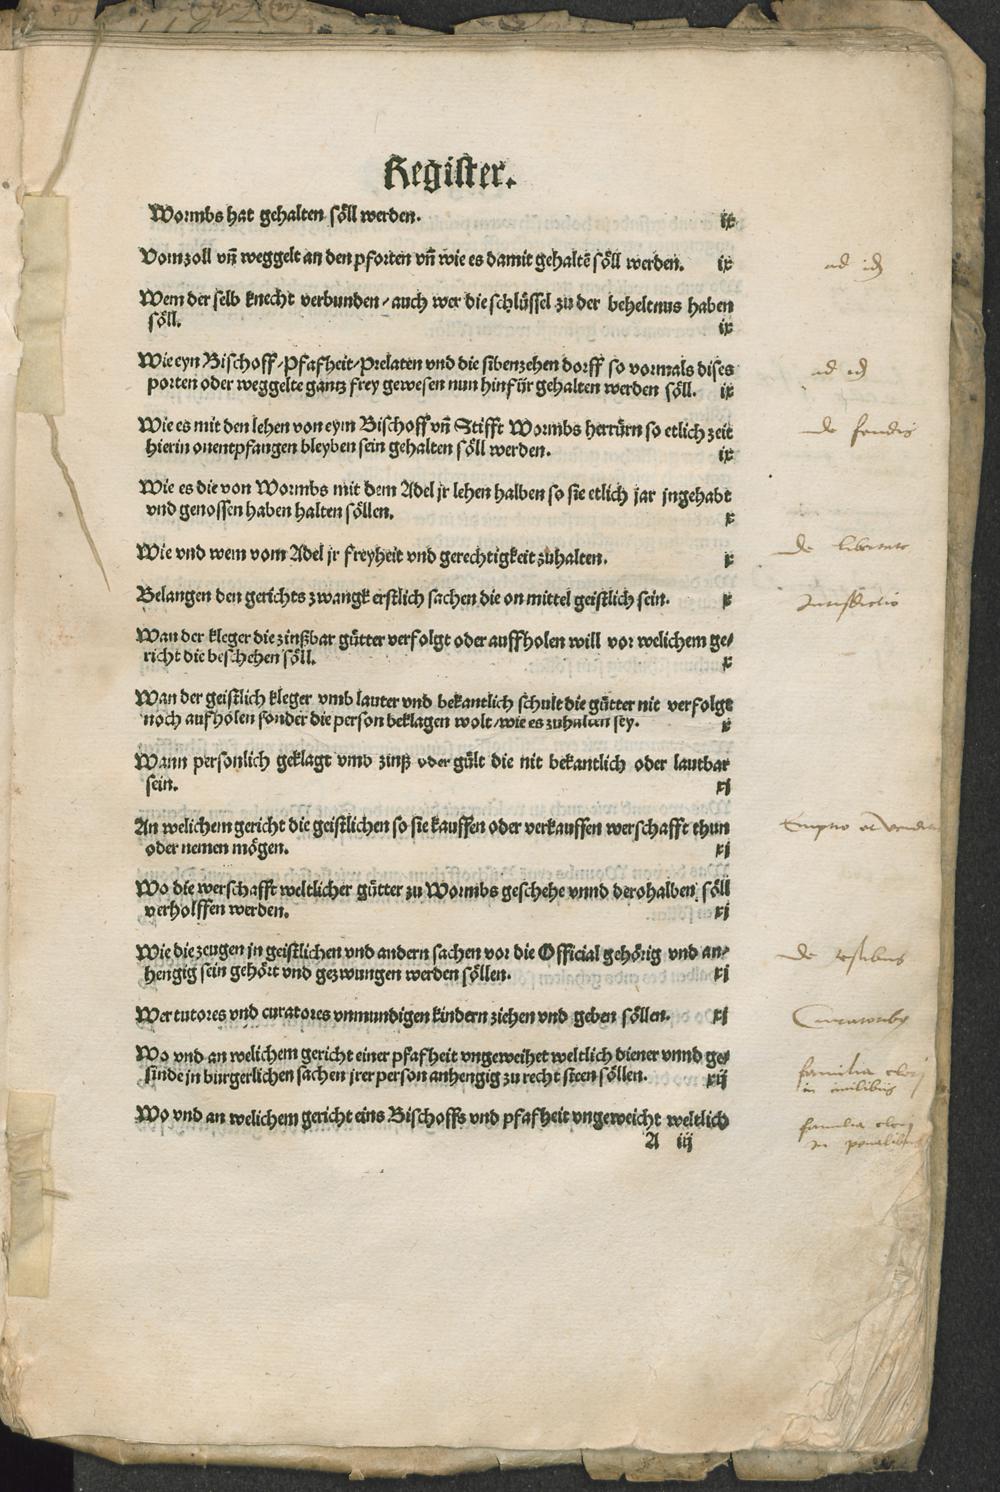 Register.
Wormbs hat gehalten söll werden. ix
Vom zoll vñ weggelt an den pforten vñ wie es damit gehaltē söll werden. ix
ad id
Wem der selb knecht verbunden / auch wer die schlüssel zu der beheltnus haben
söll. ix
Wie eyn Bischoff / Pfafheit / Prelaten vnd die sibenzehen dorff so vormals dises
ad id
porten oder weggelts gantz frey gewesen nun hinfür gehalten werden söll. ix
Wie es mit den lehen von eym Bischoff vñ Stifft Wormbs herrürn so etlich zeit
de feudis
hierin onentpfangen bleyben sein gehalten söll werden. ix
Wie es die von Wormbs mit dem Adel jr lehen halben so sie etlich jar jngehabt
vnd genossen haben halten söllen. x
Wie vnd wem vom Adel jr freyheit vnd gerechtigkeit zuhalten. x
de libertate
Belangen den gerichts zwangk erstlich sachen die on mittel geistlich sein. x
Jurisdictio
Wan der kleger die zinßbar gütter verfolgt oder auffholen will vor welichem ge/
richt die beschehen söll. x
Wan der geistlich kleger vmb lauter vnd bekantlich schult die gütter nit verfolgt
noch aufholen sonder die person beklagen wolt / wie es zuhalten sey. x
Wann personlich geklagt vmb zinß oder gült die nit bekantlich oder lautbar
sein. xj
An welichem gericht die geistlichen so sie kauffen oder verkauffen werschafft thun
Emptio et vendit
oder nemen mögen. xj
Wo die werschafft weltlicher gütter zu Wormbs geschehe vnnd derohalben söll
verholffen werden. xj
Wie die zeugen in geistlichen vnd andern sachen vor die Official gehörig vnd an/
de testibus
hengig sein gehört vnd gezwungen werden söllen. xj
Wer tutores vnd curatores vnmundigen kindern ziehen vnd geben söllen. xj
Wo vnd an welichem gericht einer pfafheit vngeweihet weltlich diener vnnd ge/
familia
sinde in burgerlichen sachen jrer person anhengig zu recht steen söllen. xij
in civilibus
Wo vnd an welichem gericht eins Bischoffs vnd pfafheit vngeweicht weltlich
familia
A iij
in